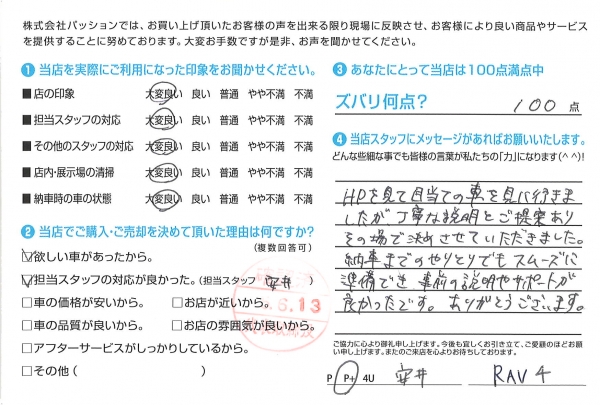 株式会社パッションでは、お買い上げ頂いたお客様の声を出来る限り現場に反映させ、お客様により良い商品やサービス
を提供することに努めております。大変お手数ですが是非、お声を聞かせてください。
❶ 当店を実際にご利用になった印象をお聞かせください。
■店の印象 大変良い 良い 普通 やや不満 不満
■担当スタッフの対応 大変良い 良い 普通 やや不満 不満
■その他のスタッフの対応 大変良い 良い 普通 やや不満 不満
■店内・展示場の清掃 大変良い 良い 普通 やや不満 不満
■納車時の車の状態 大変良い 良い 普通 やや不満 不満
❷ 当店でご購入・ご売却を決めて頂いた理由は何ですか?
(複数回答可)
☑欲しい車があったから。
☑担当スタッフの対応が良かった。(担当スタッフ 安井 )
□車の価格が安いから。 □お店が近いから。
□車の品質が良いから。 □お店の雰囲気が良いから。
□アフターサービスがしっかりしているから。
□その他( )
6.13
❸ あなたにとって当店は100点満点中
ズバリ何点? 100 点
❹ 当店スタッフにメッセージがあればお願いいたします。
どんな些細な事でも皆様の言葉が私たちの「力」になります(^^)!
HPを見て目当ての車を見に行きま
したが、丁寧な説明とご提案あり
その場で決めさせていただきました。
納車までのやりとりでもスムーズに
準備でき 事前の説明やサポートが
良かったです。ありがとうございます。
ご協力に心より御礼申し上げます。今後も宜しくお引き立て、ご愛顧のほどお願
い申し上げます。またのご来店を心よりお待ちしております。
P P+ 4U 安井 RAV4